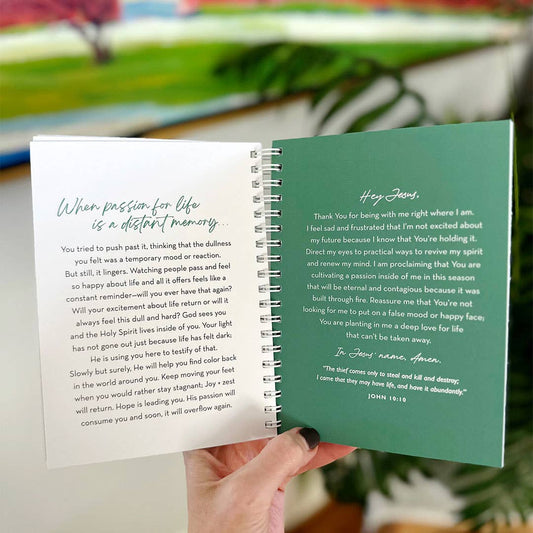 When passion for life
is a distant memory...
You tried to push past it, thinking that the dullness
you felt was a temporary mood or reaction.
But still, it lingers. Watching people pass and feel
so happy about life and all it offers feels like a
constant reminder—will you ever have that again?
Will your excitement about life return or will it
always feel this dull and hard? God sees you
and the Holy Spirit lives inside of you. Your light
has not gone out just because life has felt dark;
He is using you here to testify of that.
Slowly but surely, He will help you find color back
in the world around you. Keep moving your feet
when you would rather stay stagnant; Joy + zest
will return. Hope is leading you. His passion will
consume you and soon, it will overflow again.
Hey Jesus,
Thank You for being with me right where I am.
I feel sad and frustrated that I'm not excited about
my future because I know that You're holding it.
Direct my eyes to practical ways to revive my spirit
and renew my mind. I am proclaiming that You are
cultivating a passion inside of me in this season
that will be eternal and contagious because it was
built through fire. Reassure me that You're not
looking for me to put on a false mood or happy face;
You are planting in me a deep love for life
that can't be taken away.
In Jesus' name, Amen.
"The thief comes only to steal and kill and destroy;
I came that they may have life, and have it abundantly."
JOHN 10:10